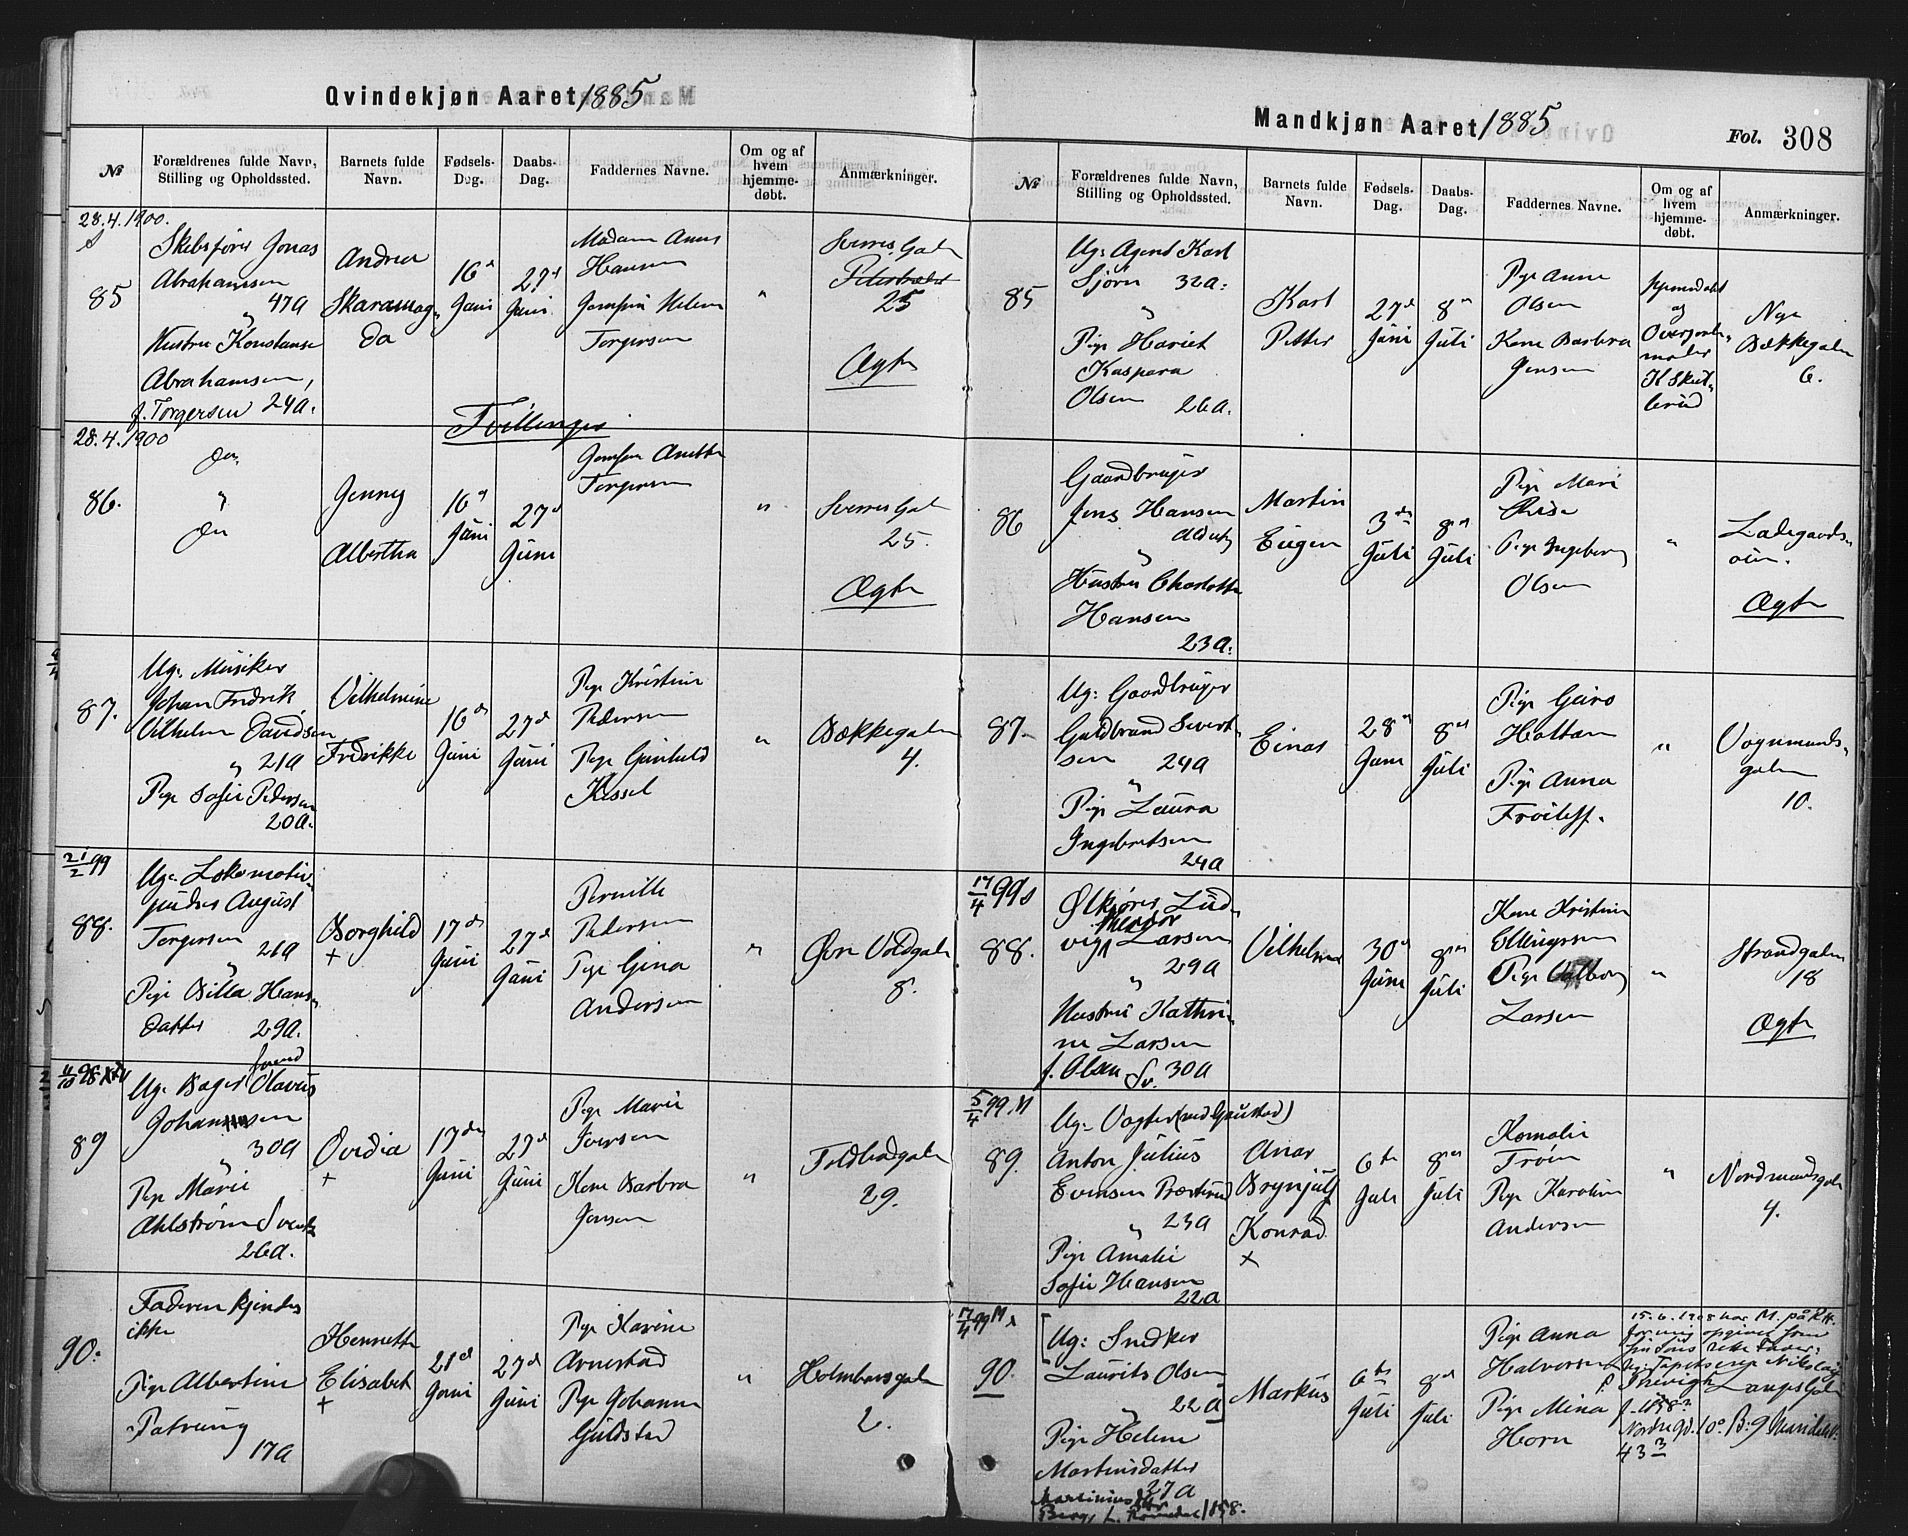 Qvindekjøn Aaret 1885
№
Forældrenes fulde Navn, Stilling og Opholdssted.
Barnets fulde Navn.
Fødsels-Dag.
Daabs-Dag.
Faddernes Navne.
Om og af hvem hjemme-døbt.
Anmærkninger.
28.4.1900.
85
Skibsfører Jonas
Abrahamsen
47 a
"
Hustru Konstanse
Abrahamsen,
f. Torgersen 24 a.
Andrea
Skaramag-
da
16d
Juni
27d
Juni
Madam
Hansen
Jomfru Helene
Torgersen
"
Sverres Gade
25
Ægte
Tvillinger
28.4.1900
86.
do
"
do
Jenny
Albertha
16d
Juni
27d
Juni
Jomfru Anette
Torgersen
"
Sverres Gade
25.
Ægte
87.
Ug. Musiker
Johan Fredrik
Vilhelm Davidsen
" 21 a
Pige Sofie Pedersen
20 a.
Vilhelmine
Fredrikke
16de
Juni
27d
Juni
Pige Kristine
Pedersen
Pige Gunhild
Kessel
"
Bækkegaden
4.
21/2 99
88.
Ug. Lokomotiv-
pudser August
Torgersen
21 a
"
Pige Billa Hans-
datter 29 a.
Borghild
+
17de
Juni
27d
Juni
Pernille
Pedersen
Pige Gina
Andersen
"
Øvre Voldgade
8.
89
Ug. Bager Olavus
Johansen
30 a
"
Pige Marie
Ahlstrøm Svensk
26 a.
Ovidia
+
17de
Juni
27d
Juni
Pige Marie
Iversen
Kone Barbra
Jensen
"
Toldbodgaden
29.
90.
Faderen kjendes
ikke
Pige Albertine
Patrung
17 a
Hennette
Elisabet
+
21d
Juni
27d
Juni
Pige Karine
Arnestad
Pige Johanne
Guldstad
"
Holmboesgade
2.
Mandkjøn Aaret 1885
Fol. 308
№
Forældrenes fulde Navn, Stilling og Opholdssted.
Barnets fulde Navn.
Fødsels-Dag.
Daabs-Dag.
Faddernes Navne.
Om og af hvem hjemme-døbt.
Anmærkninger.
85
Ug: Agent Karl
Sjørn 32 a.
"
Pige Hariet
Kaspara
Olsen 26 a.
Karl
Petter
27d
Juni
8de
Juli
Pige Anne
Olsen
Kone Barbra
Jensen
hjemmedøbt
af
Overjorde-
moder
K Skut-
lerud
Nye
Bækkegaden
6.
86
Gaardbruger
Jens Hansen
"
Hustru Charlotte
Hansen
23 a.
Martin
Eugen
3de
Juli
8de
Juli
Pige Mari
Pige Ingeborg
Olsen
"
Ladegaards-
øen.
Ægte
87.
Ug: Gaardbruger
Guldbrand Sivert-
sen 24 a
"
Pige Laura
Ingebretsen
24 a
Einar
28de
Juni
8de
Juli
Pige Guro
Holtan
Pige Anna
"
Vognmands-
gaden
10.
17/4 99 s
88.
Ølkjører Lud-
Theodor
vig Larsen
29 a
"
Hustru Kathri-
ne Larsen
f. Olsen Sv. 30 a
Vilhelm
30d
Juni
8de
Juli
Kone Kristine
Ellingsen
Pige Valborg
Larsen
"
Strandgaden
18
Ægte
5/4 99. M
89.
Ug. Vogter (ved Gaustad)
Anton Julius
Evensen Præsterud
" 23 a
Pige Amalie
Sofie Hansen
22 a
Anar
Brynjulf
Konrad
+
6te
Juli
8de
Juli
Kornelie
Trøen
Pige Karoline
Andersen
"
Nordmandsgade
4.
17/4 99 M
90.
Ug: Snedker
Laurits Olsen
22 a
"
Pige Helene
Martinsdatter
27 a
Markus
6te
Juli
8d
Juli
Pige Anna
Halversen
Pige Mina
Horn
15.6.1908 har M. på R.H.
Langsgaden
9